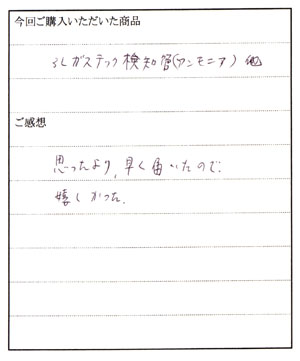 今回ご購入いただいた商品
ガステック検知管(アンモニア) 他
ご感想
思ったより、早く届いたので
嬉しかった。